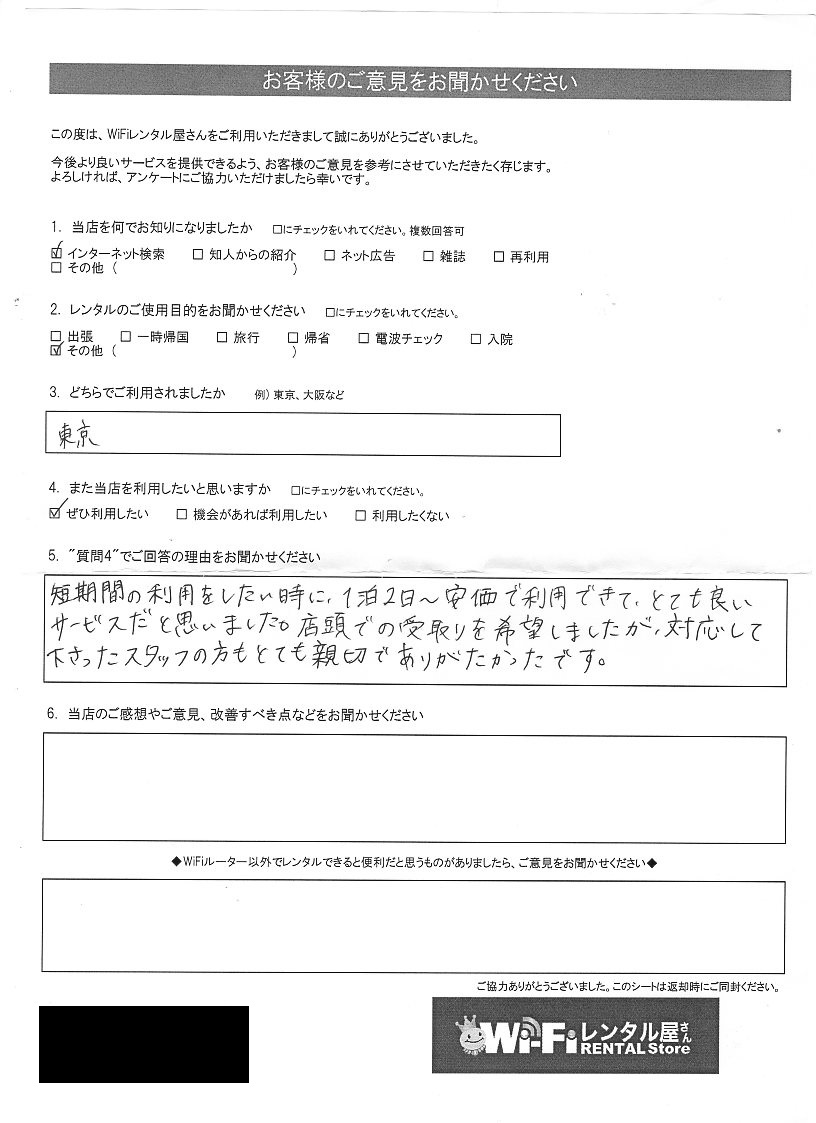 お客様のご意見をお聞かせください
この度は、WiFiレンタル屋さんをご利用いただきまして誠にありがとうございました。
今後より良いサービスを提供できるよう、お客様のご意見を参考にさせていただきたく存じます。
よろしければ、アンケートにご協力いただけましたら幸いです。
1. 当店を何でお知りになりましたか □にチェックをいれてください。複数回答可
☑ インターネット検索 □ 知人からの紹介 □ ネット広告 □ 雑誌 □ 再利用
□ その他 ( )
2. レンタルのご使用目的をお聞かせください □にチェックをいれてください。
□ 出張 □ 一時帰国 □ 旅行 □ 帰省 □ 電波チェック □ 入院
☑ その他 ( )
3. どちらでご利用されましたか 例) 東京、大阪など
東京
4. また当店を利用したいと思いますか □にチェックをいれてください。
☑ ぜひ利用したい □ 機会があれば利用したい □ 利用したくない
5. "質問4"でご回答の理由をお聞かせください
短期間の利用をしたい時に、1泊2日～安価で利用できて、とても良い
サービスだと思いました。店頭での受取りを希望しましたが、対応して
下さったスタッフの方もとても親切でありがたかったです。
6. 当店のご感想やご意見、改善すべき点などをお聞かせください
◆WiFiルーター以外でレンタルできると便利だと思うものがありましたら、ご意見をお聞かせください◆
ご協力ありがとうございました。このシートは返却時にご同封ください。
Wi-Fiレンタル屋さん
RENTAL Store